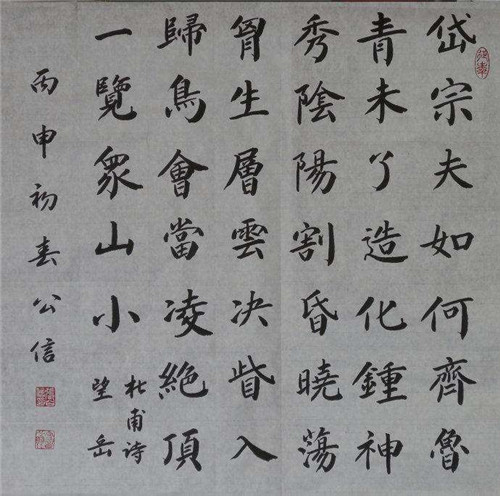 岱宗夫如何齊魯
青未了造化鍾神
秀陰陽割昏曉蕩
胷生層雲决眥入
歸鳥會當凌絶頂
一覽眾山小
杜甫诗
望岳
丙申初春公信